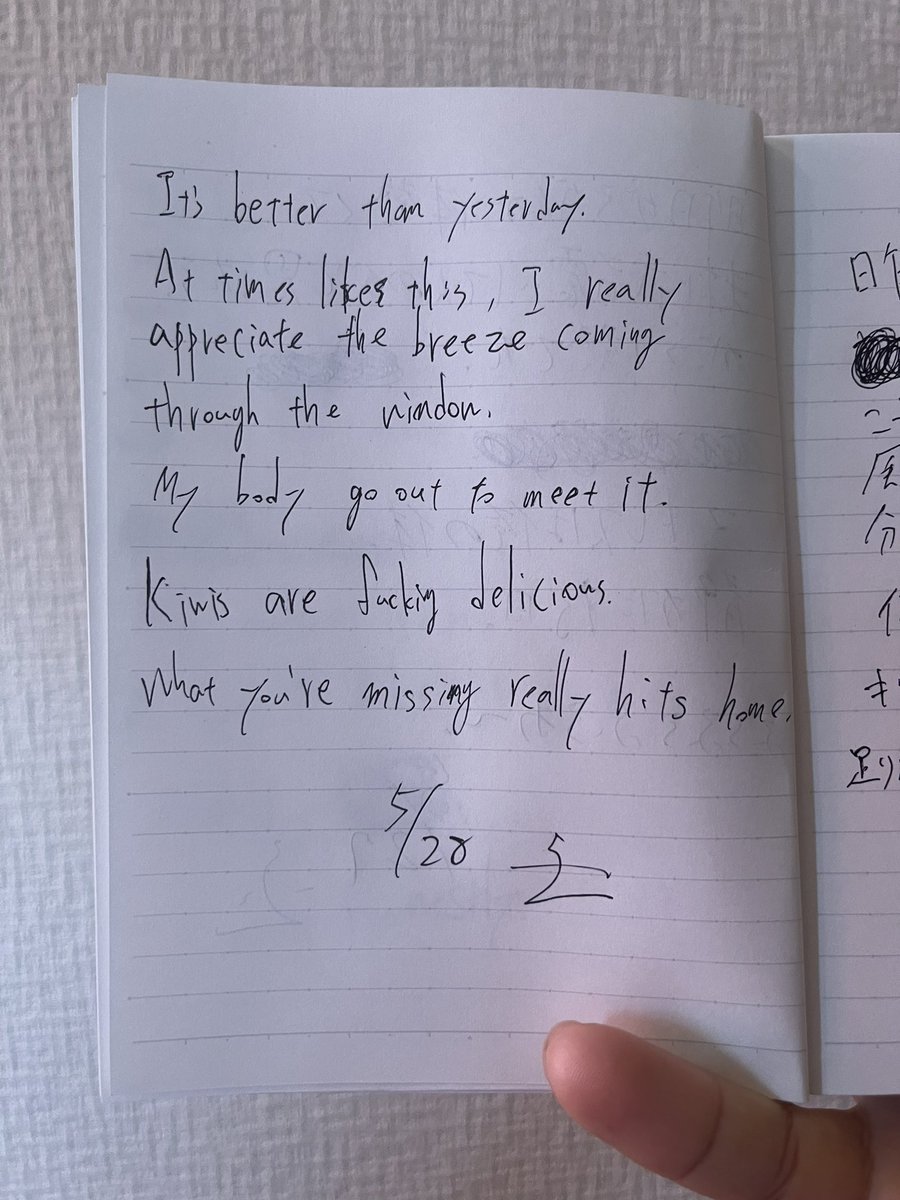 It's better than yesterday.
At times likes this, I really
appreciate the breeze coming
through the window.
My body go out to meet it.
Kiwis are fucking delicious.
What you're missing really hits home.
5/20
日
分
足り